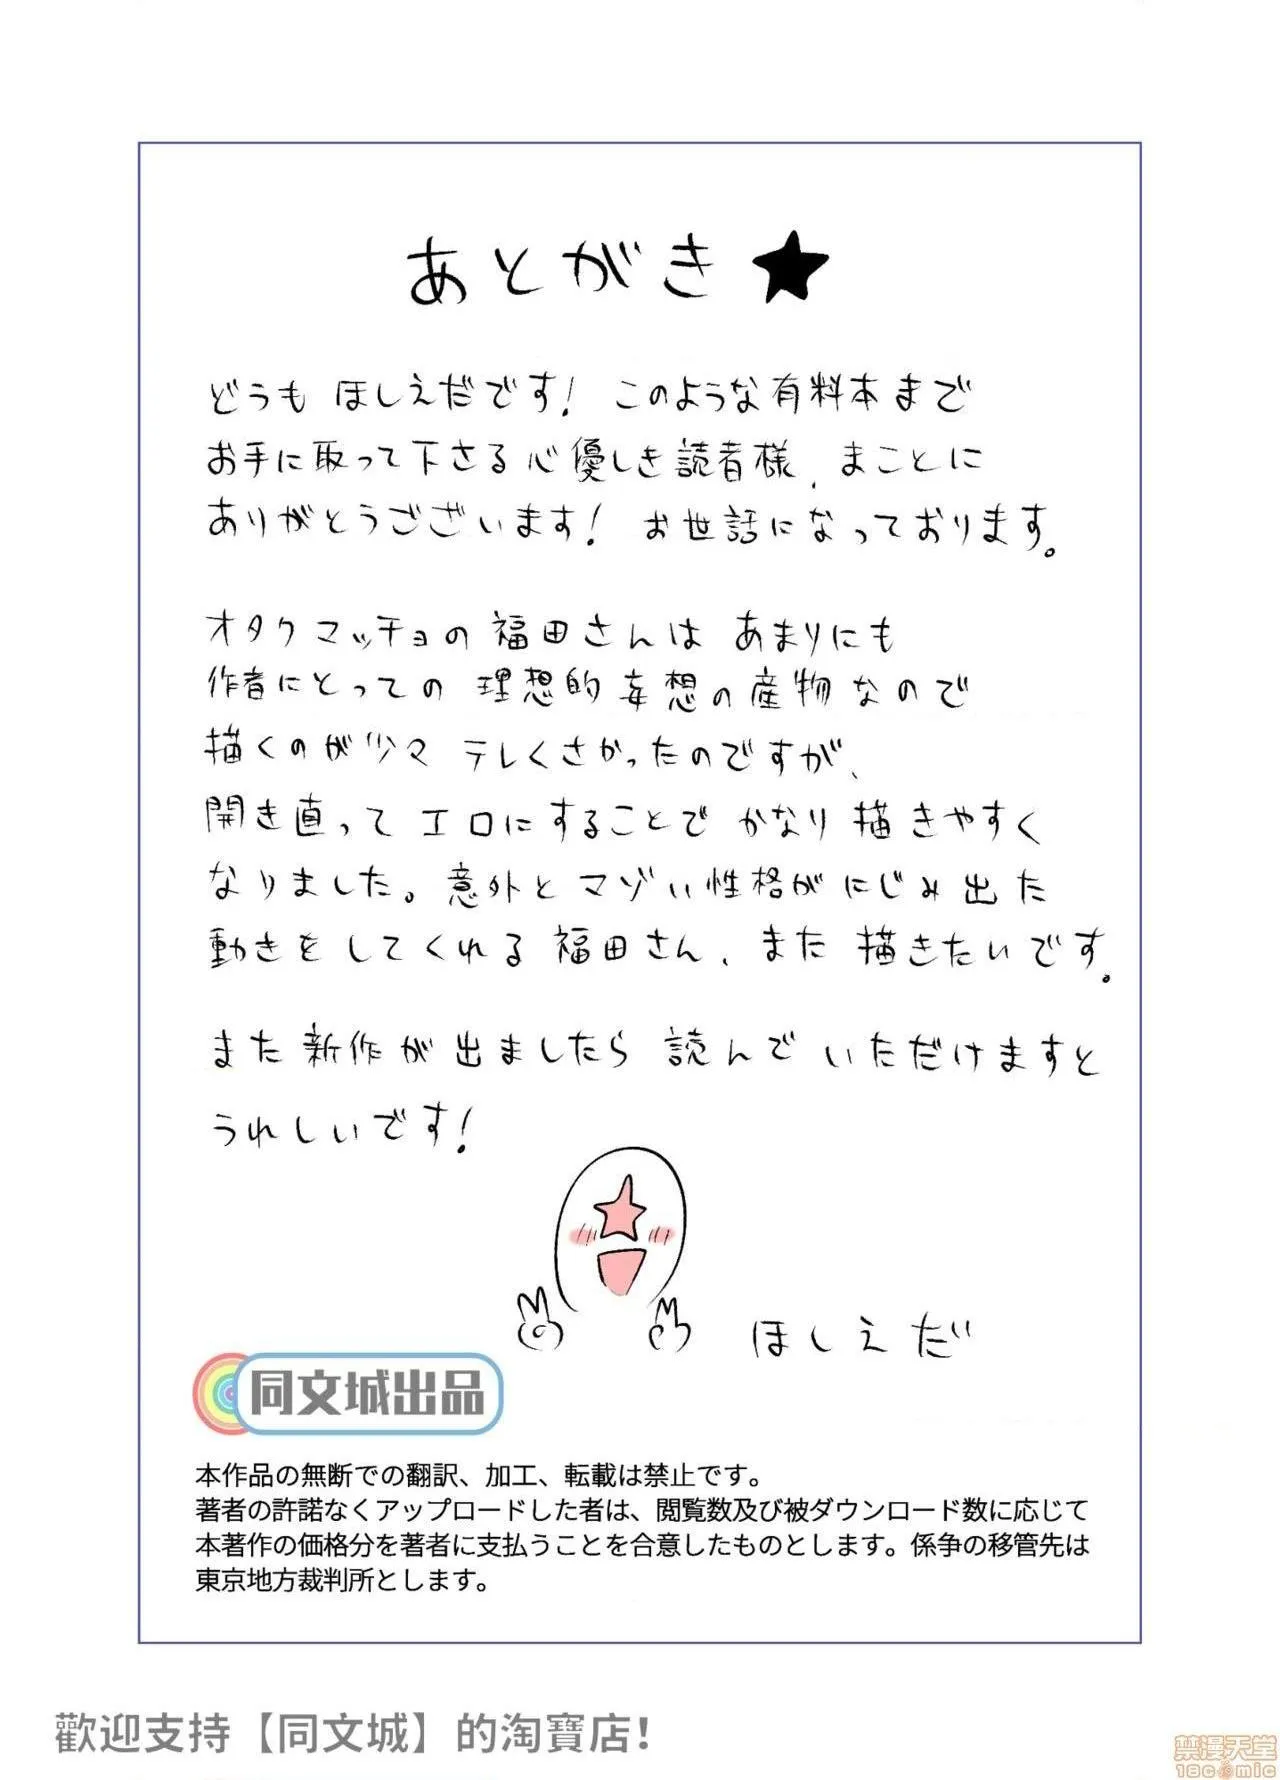 あとがき★
どうも ほしえだです! このような有料本まで
お手に取って下さる心優しき読者様、まことに
ありがとうございます! お世話になっております。
オタクマッチョの福田さんは あまりにも
作者にとっての 理想的妄想の産物なので
描くのが少々 テレくさかったのですが、
開き直って エロにすることで かなり 描きやすく
なりました。意外と マゾい性格がにじみ出た
動きをしてくれる 福田さん、また 描きたいです。
また 新作が出ましたら 読んで いただけますと
うれしいです!
ほしえだ
同文城出品
本作品の無断での翻訳、加工、転載は禁止です。
著者の許諾なくアップロードした者は、閲覧数及び被ダウンロード数に応じて
本著作の価格分を著者に支払うことを合意したものとします。係争の移管先は
東京地方裁判所とします。
歡迎支持【同文城】的淘寶店!
禁漫天堂
18comic